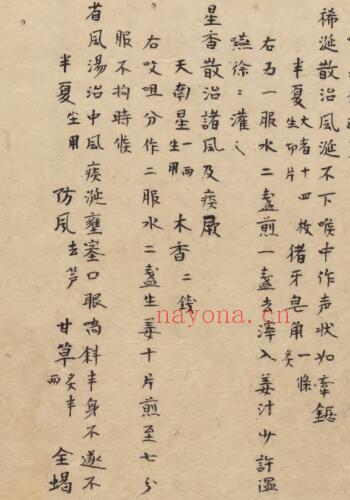 稀涎散治風涎不下喉中作声狀如牽鋸
半夏大者十四枚生切片猪牙皂角一條炙
右爲一服水二盏煎一盏去滓入姜汁少許温
嚥徐〻灌之
星香散治諸風及痰厥
天南星一兩生用 木香二錢
右㕮咀分作二服水二盏生姜十片煎至七分
服不拘時候
省風湯治中風痰涎壅塞口眼喎斜半身不遂不
半夏生用 防風去芦 甘草炙半兩 全蝎
nayona.cn